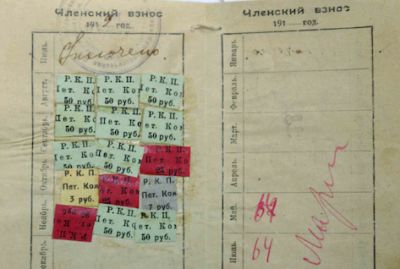 Членский взнос
191 год.
Июль.
Август.
Р. К. П. Р. К. П. Р. К. П.
Пет. Ком Пет. Ком Пет. Ком
50 руб. 50 руб. 50 руб.
Сентябрь.
Р. К. П. Р. К. П. Р. К. П.
Пет. Ком Пет. Ком Пет. Ком
50 руб. 50 руб. 50 руб.
Октябрь.
Р. К. П. Р. К. П. Р. К. П.
Пет. Ком Пет. Ком Пет. Ком
50 руб. 50 руб. 25 руб.
Р. К. П. Р. К. П.
Пет. Ком Пет. Ком
3 руб. руб.
Ноябрь.
Р. К. П. Р. К. П.
Пет. Ком Пет. Ком
50 руб. 50 руб.
Членский взнос
191 год.
Январь.
Февраль.
Март.
Апрель.
Май.
64
Июнь.
64